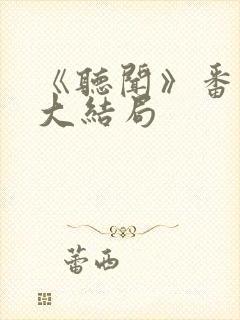 《聽聞》番
大結局
蕾西